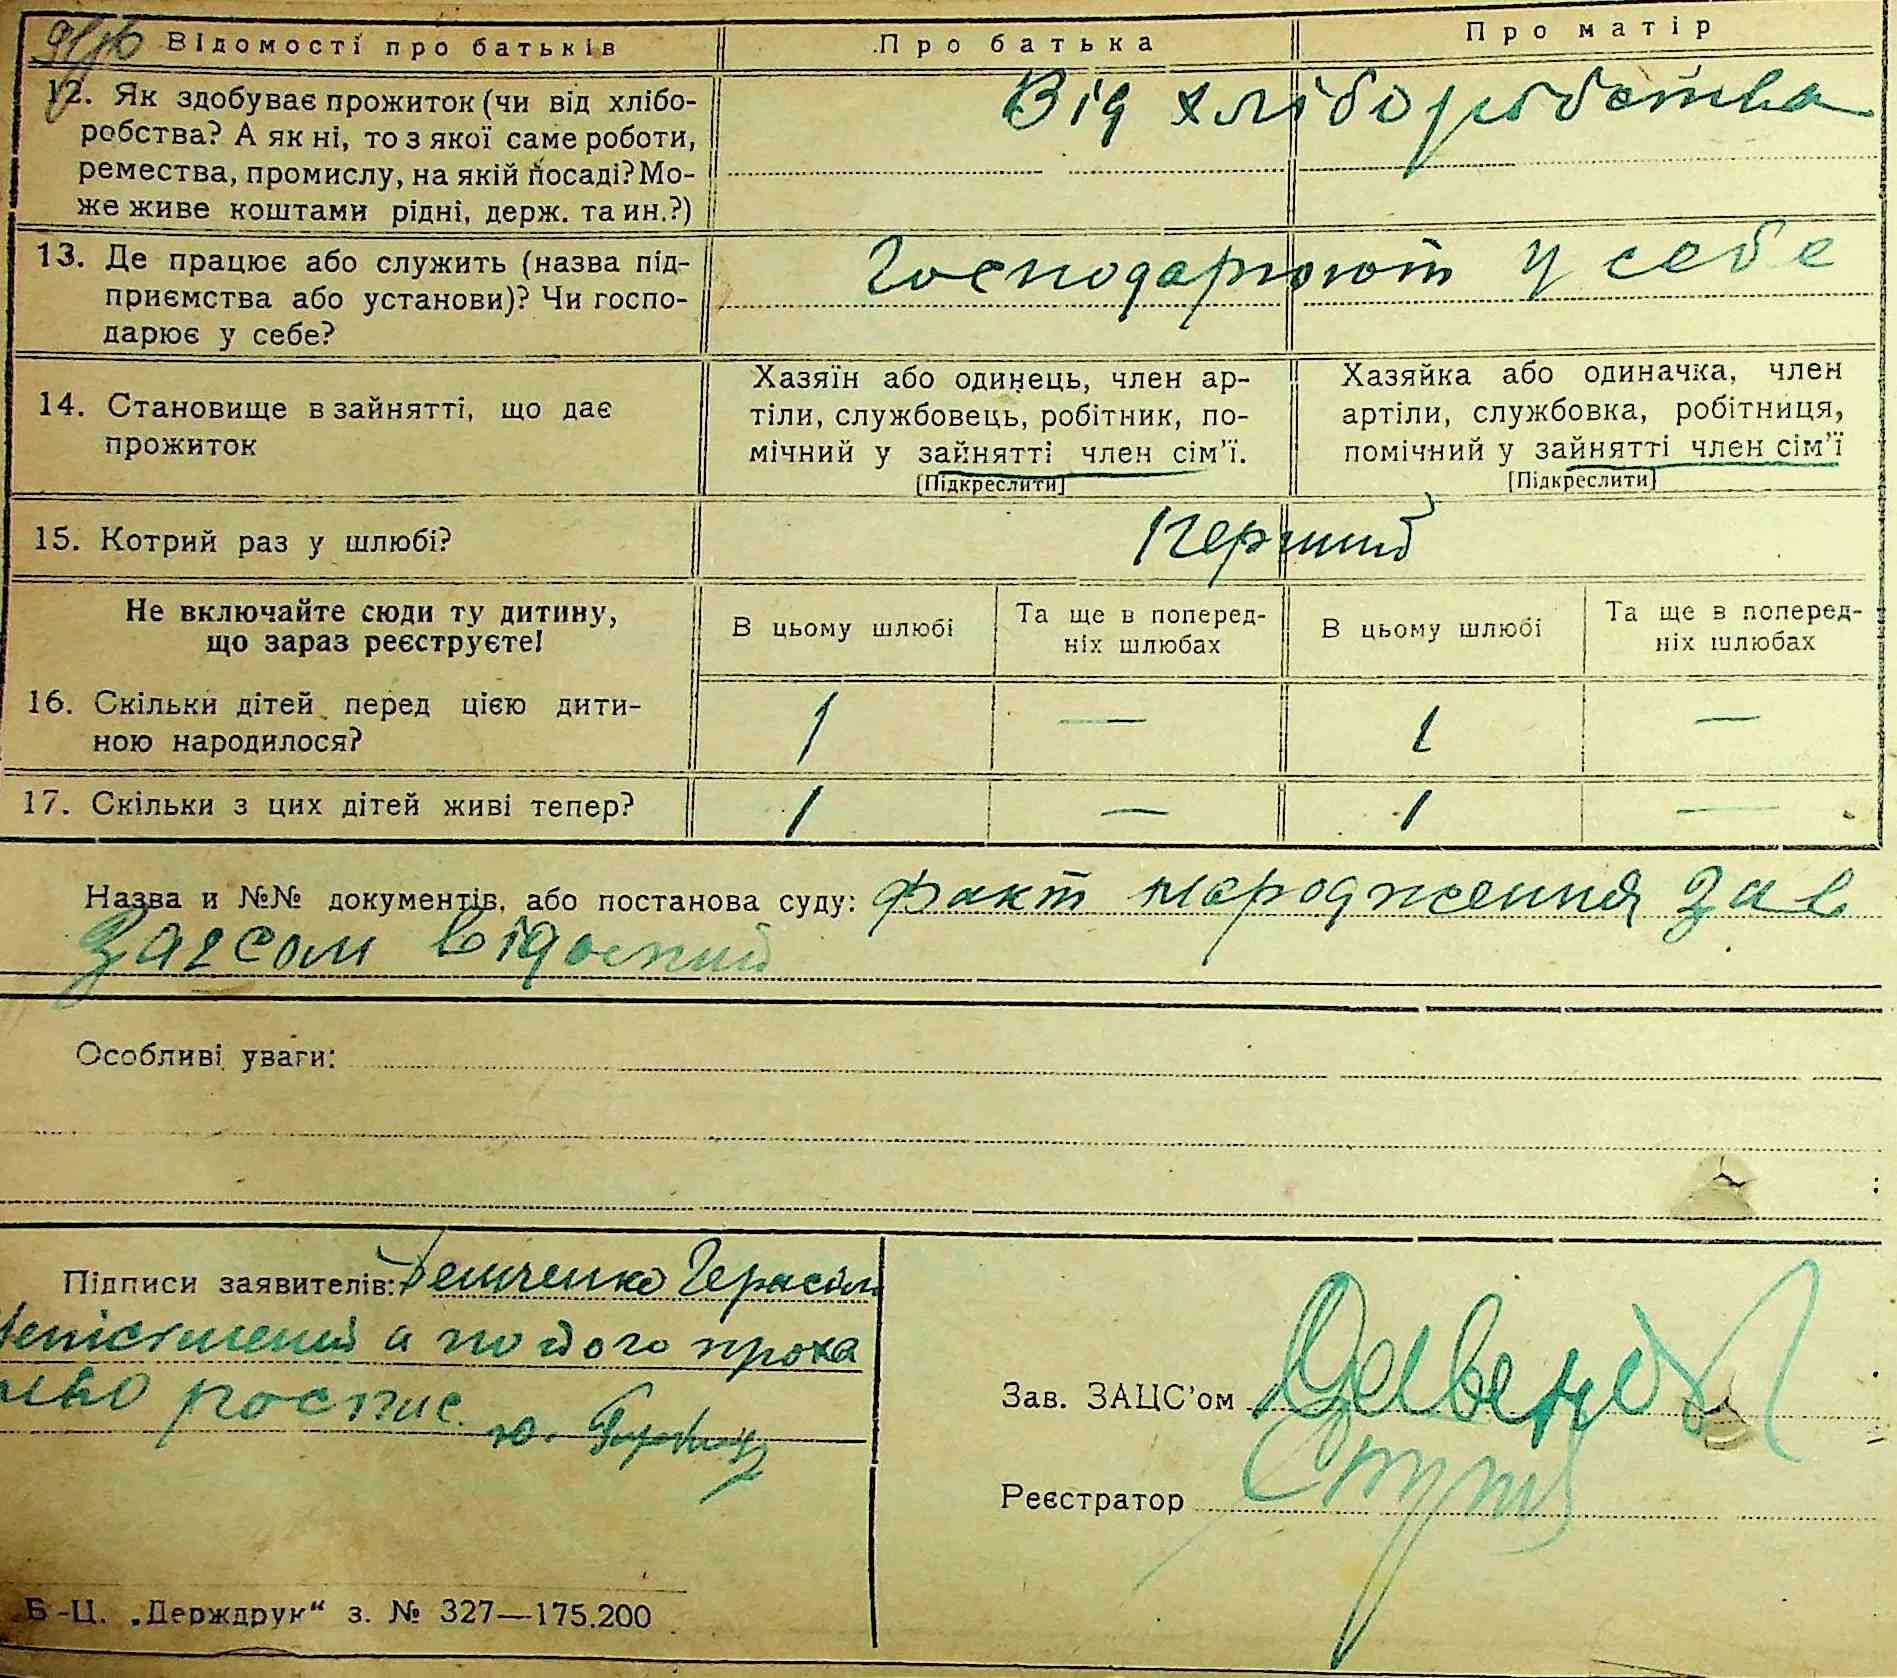 Відомості про батьків Про батька Про матір
12. Як здобуває прожиток (чи від хлібо-
робства? А як ні, то з якої саме роботи,
ремества, промислу, на якій посаді? Мо-
же живе коштами рідні, держ. та ин.?)
Від хліборобства
13. Де працює або служить (назва під-
приємства або установи)? Чи госпо-
дарює у себе?
Господарюют у себе
14. Становище в зайнятті, що дає
прожиток
Хазяїн або одинець, член ар-
тіли, службовець, робітник, по-
мічний у зайнятті член сім'ї.
[Підкреслити]
Хазяйка або одиначка, член
артіли, службовка, робітниця,
помічний у зайнятті член сім'ї
[Підкреслити]
15. Котрий раз у шлюбі? Перший
Не включайте сюди ту дитину,
що зараз реєструєте!
В цьому шлюбі
Та ще в поперед-
ніх шлюбах
В цьому шлюбі
Та ще в поперед-
ніх шлюбах
16. Скільки дітей перед цією дити-
ною народилося?
1 — 1 —
17. Скільки з цих дітей живі тепер? 1 — 1 —
Назва и №№ документів, або постанова суду: факт народження зав
загсом відомий
Особливі уваги:
Підписи заявителів: Герасим
а по його проха
нню роспис.
Зав. ЗАЦС'ом
Реєстратор
Б-Ц. „Держдрук“ з. № 327—175.200